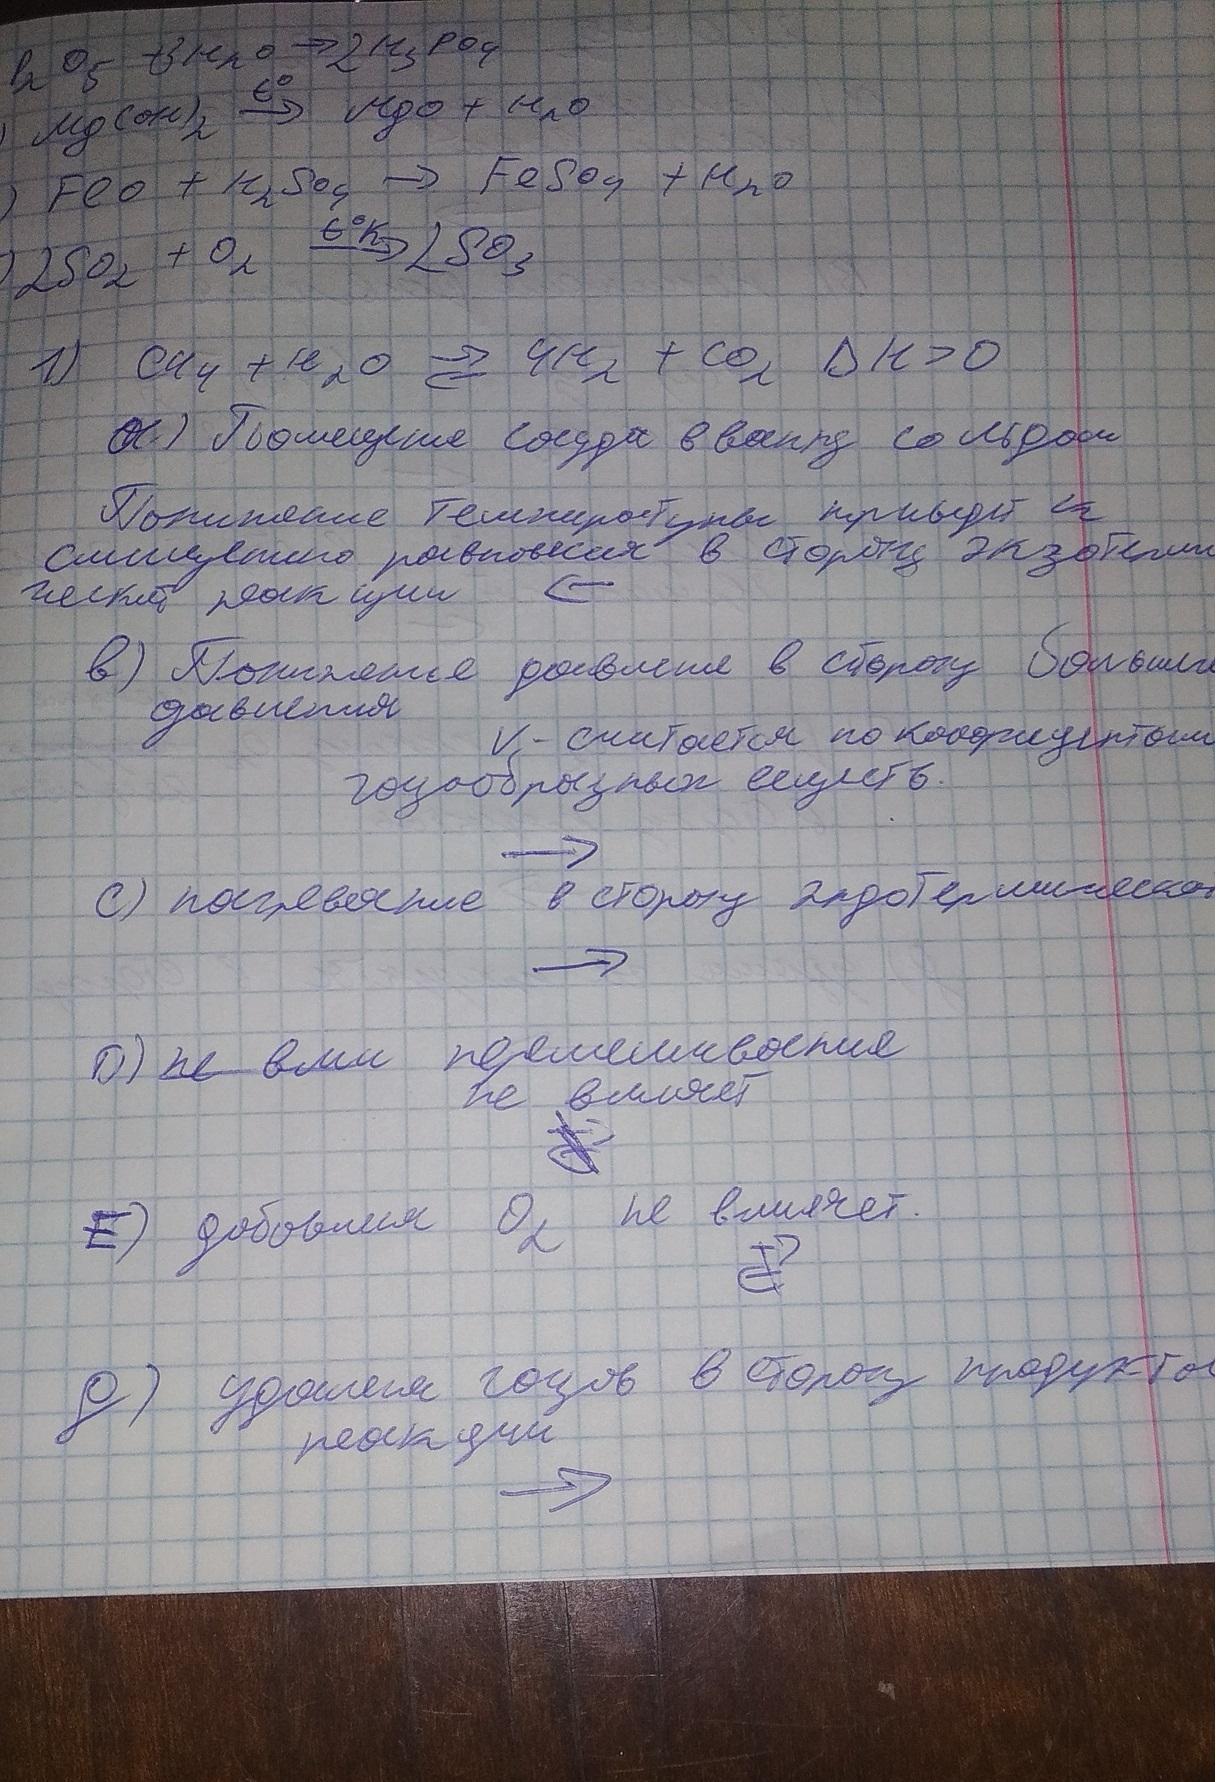 P₂O₅ + 3H₂O → 2H₃PO₄
) Mg(OH)₂ t°→ MgO + H₂O
) FeO + H₂SO₄ → FeSO₄ + H₂O
) 2SO₂ + O₂ t°K→ 2SO₃
1) CH₄ + H₂O ⇄ 4H₂ + CO₂ ΔH>0
а) Помещение сосуда в ванну со льдом
Понижение температуры приведёт к
смещению равновесия в сторону экзотерми
ческой реакции ←
в) Понижение давления в сторону больше
давления
V - считается по коэфициентам
газообразных веществ.
→
С) нагревание в сторону эндотермическо
→
D) не вли перемешивание
не влияет
E) добавления O₂ не влияет.
⇄
g) удаления газов в сторону продуктов
реакции
→